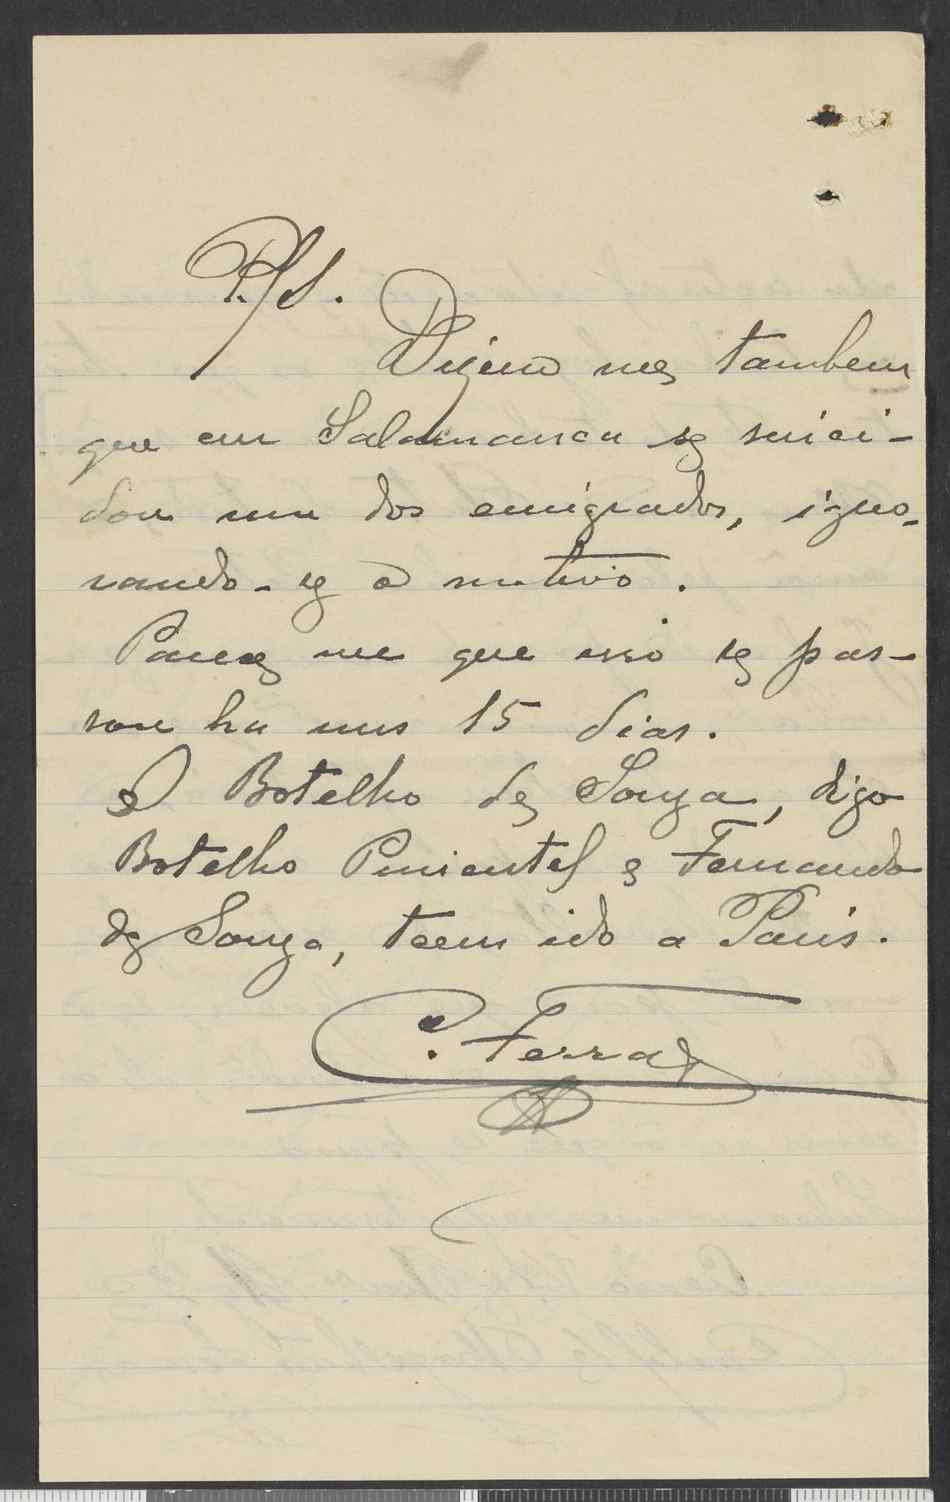 P.S.
Dizem me tambem
que em Salamanca se suici-
dou um dos emigrados, igno-
rando-se o motivo.
Parece me que isso se pas-
sou ha uns 15 dias.
O Botelho de Souza, digo
Botelho Pimentel e Fernando
de Souza, teem ido a Paris.
C. Ferraz